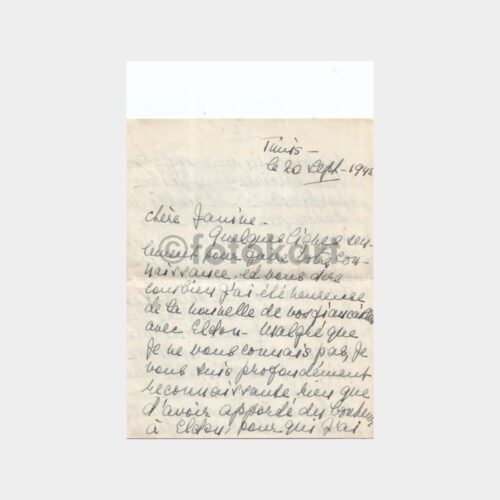 Tunis -
le 20 Sept - 1945
Chère Janine -
Quelques lignes seu-
lement pour faire votre con-
naissance, et vous dire
combien j'ai été heureuse
de la nouvelle de vos fiançailles
avec Eldon - Malgré que
je ne vous connais pas, je
vous suis profondément
reconnaissante rien que
d'avoir apporté du bonheur
à Eldon, pour qui j'ai
©fotokart